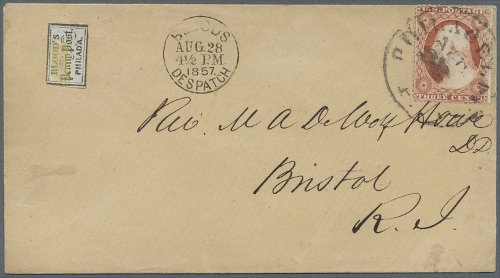 BLOOD'S
Penny Post.
PHILADA.
BLOODS
AUG. 28
4½ P.M.
1857.
DESPATCH
U.S. POSTAGE
THREE CENTS
Rev. M A DeWolf Howe
DD
Bristol
R. I.